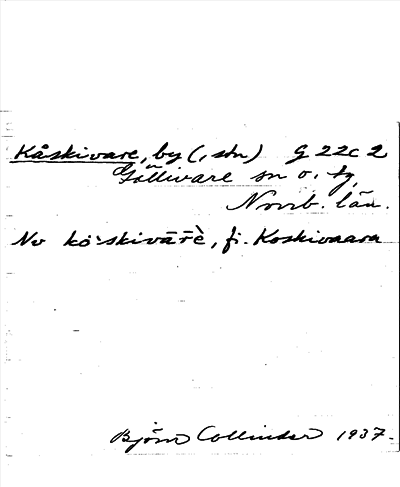 Kåskivare, by (, stn) G 22c 2
Gällivare sn o. tg,
Norrb. län.
Nv kå`skivārè, fi. Koskivaara
Björn Collinder 1937.